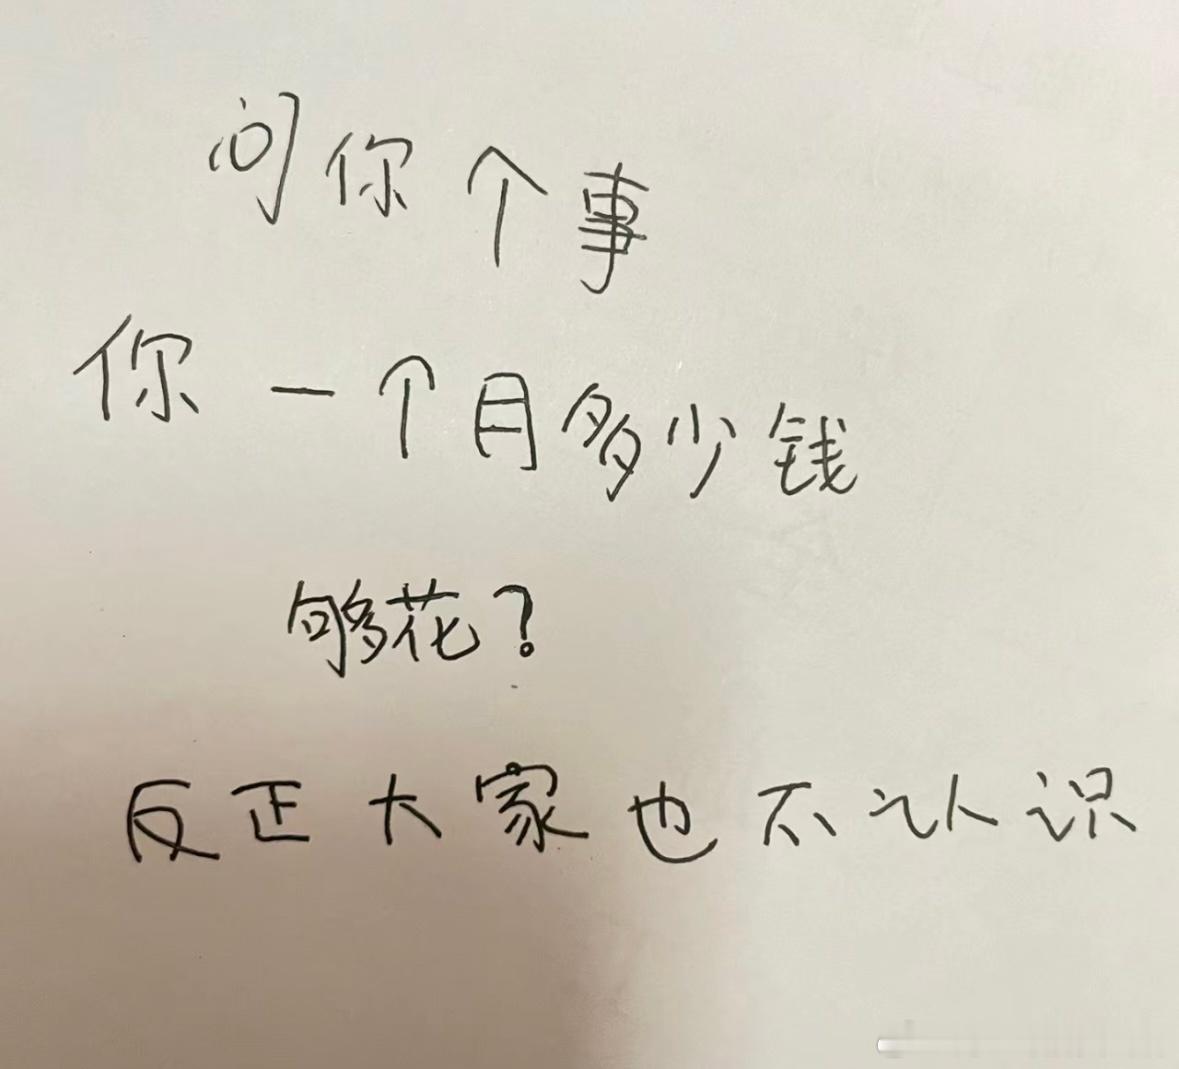 问你个事
你一个月多少钱
够花？
反正大家也不认识